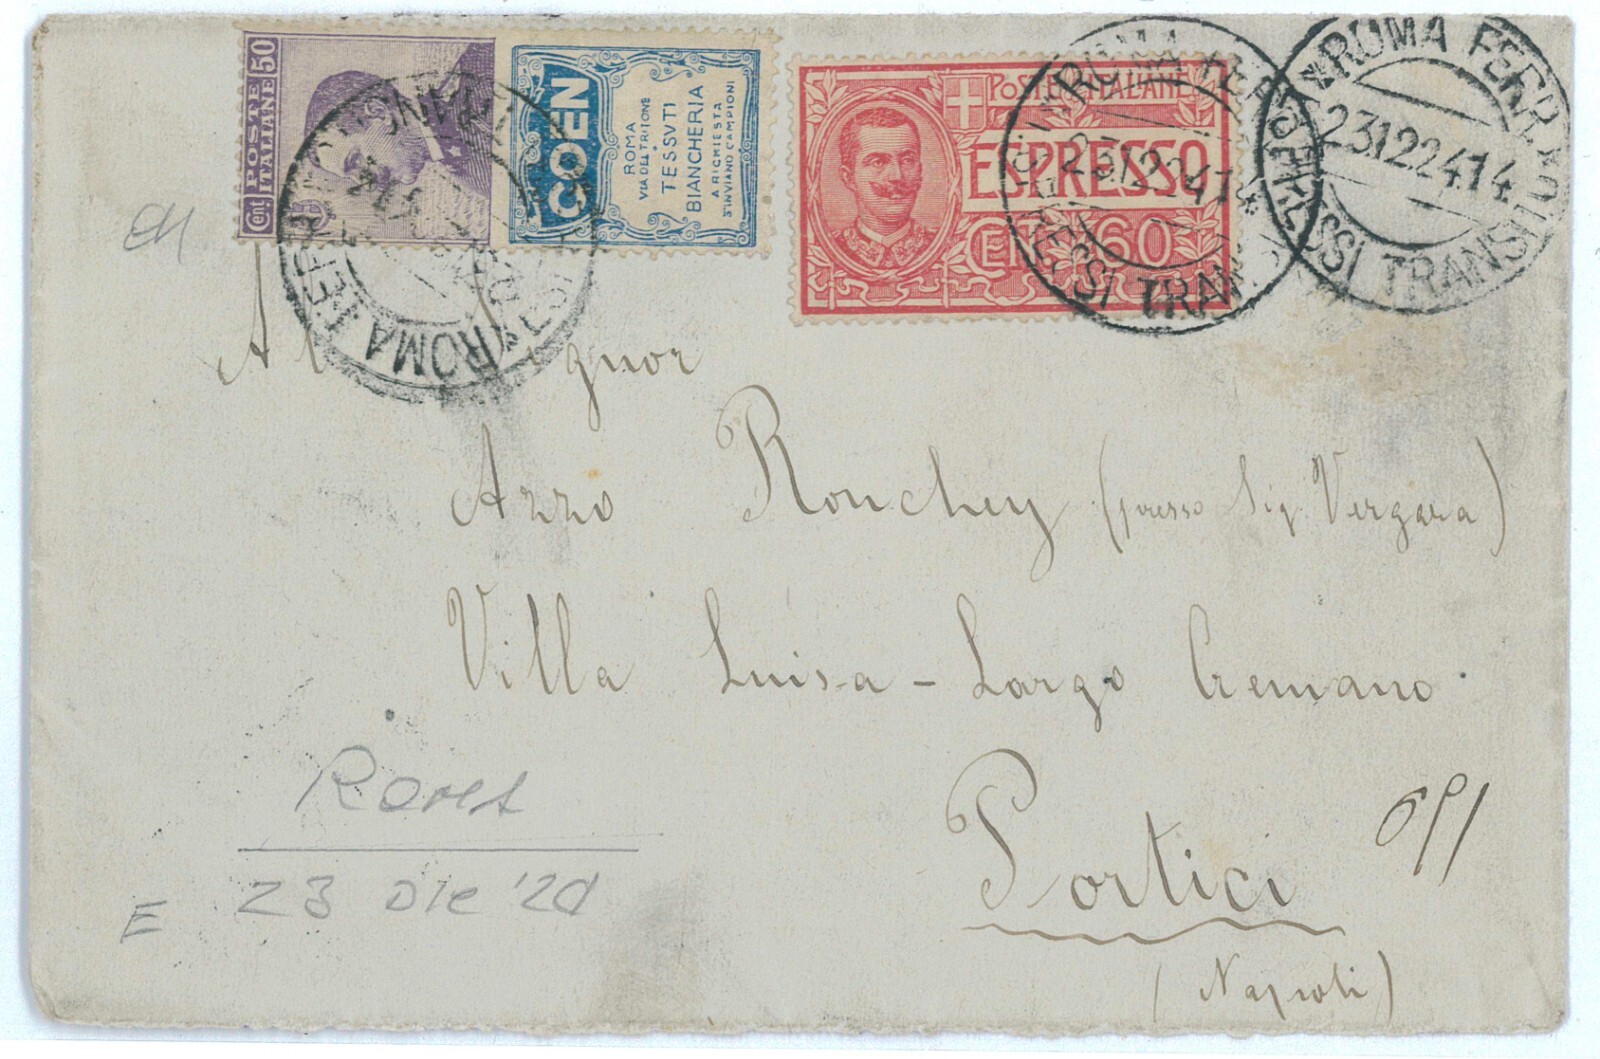 Cent. POSTE ITALIANE 50
COEN
ROMA
VIA DEL TRITONE
TESSVTI
BIANCHERIA
A RICHIESTA
S'INVIANO CAMPIONI
POSTE ITALIANE
ESPRESSO
CENT. 60
ROMA FERR
23.12.24.14
TRAN
ROMA FERROVIA
23.12.24.14
TRANSITO
ROMA FERR
Al Signor
Azzo Ronchey (presso Sig. Vergara)
Villa Luisa - Largo Cremano
Portici
(Napoli)
23 Dic '24
E